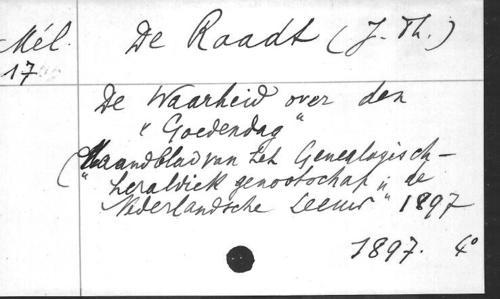 Mél.
17
De Raadt (J. Th.)
De Waarheid over den
"Goedendag"
(Maandblad van het Genealogisch-
heraldiek genootschap "de
Nederlandsche Leeuw" 1897
1897. 4°